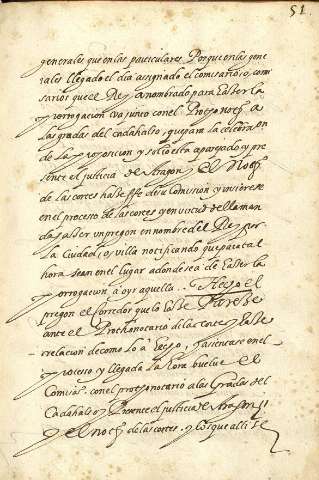 51.
generales que en las particulares. Porque en las gene
rales llegado el dia assignado el comissario, o, comi
sarios que el Rey a nombrado para hazer la
prorrogacion va junto con el Prothonotº a
las gradas del cadahalso, que para la celebracion
de la proposicion y solio esta aparejado y pre
sente el justicia de Aragon, y el Notº
de las cortes haze ffe de su comission y insierese
en el processo de las cortes y en virtud della man
da hazer un pregon en nombre del Rey por
la Ciudad, o, villa notificando que para tal
hora sean en el lugar adonde se a de hazer la
prorrogacion a oyr aquella. Hecho el
pregon el corredor que lo haze Parece
ante el Prothonotario de las cortes y haze
relacion de como lo a hecho, y assientase en el
processo y llegada la hora buelve el
Comisº con el protonotario a las Gradas del
Cadahalso y Presente el justicia de Aragon
y el notº de las cortes. y los que alli se